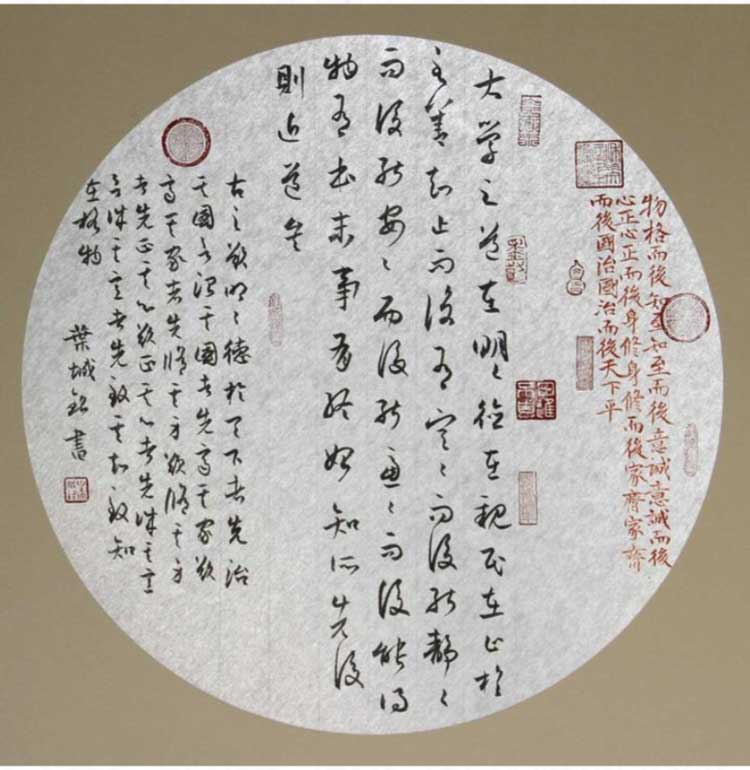 物格而後知至知至而後意誠意誠而後
心正心正而後身修身修而後家齊家齊
而後國治國治而後天下平
大学之道在明〻德在親民在止於
至善知止而後有定〻而後能靜〻
而後能安〻而後能慮〻而後能得
物有本末事有終始知所先後
則近道矣
古之欲明〻德於天下者先治
其國欲治其國者先齊其家欲
齊其家者先修其身欲修其身
者先正其心欲正其心者先誠其意
欲誠其意者先致其知致知
在格物
葉城銘書